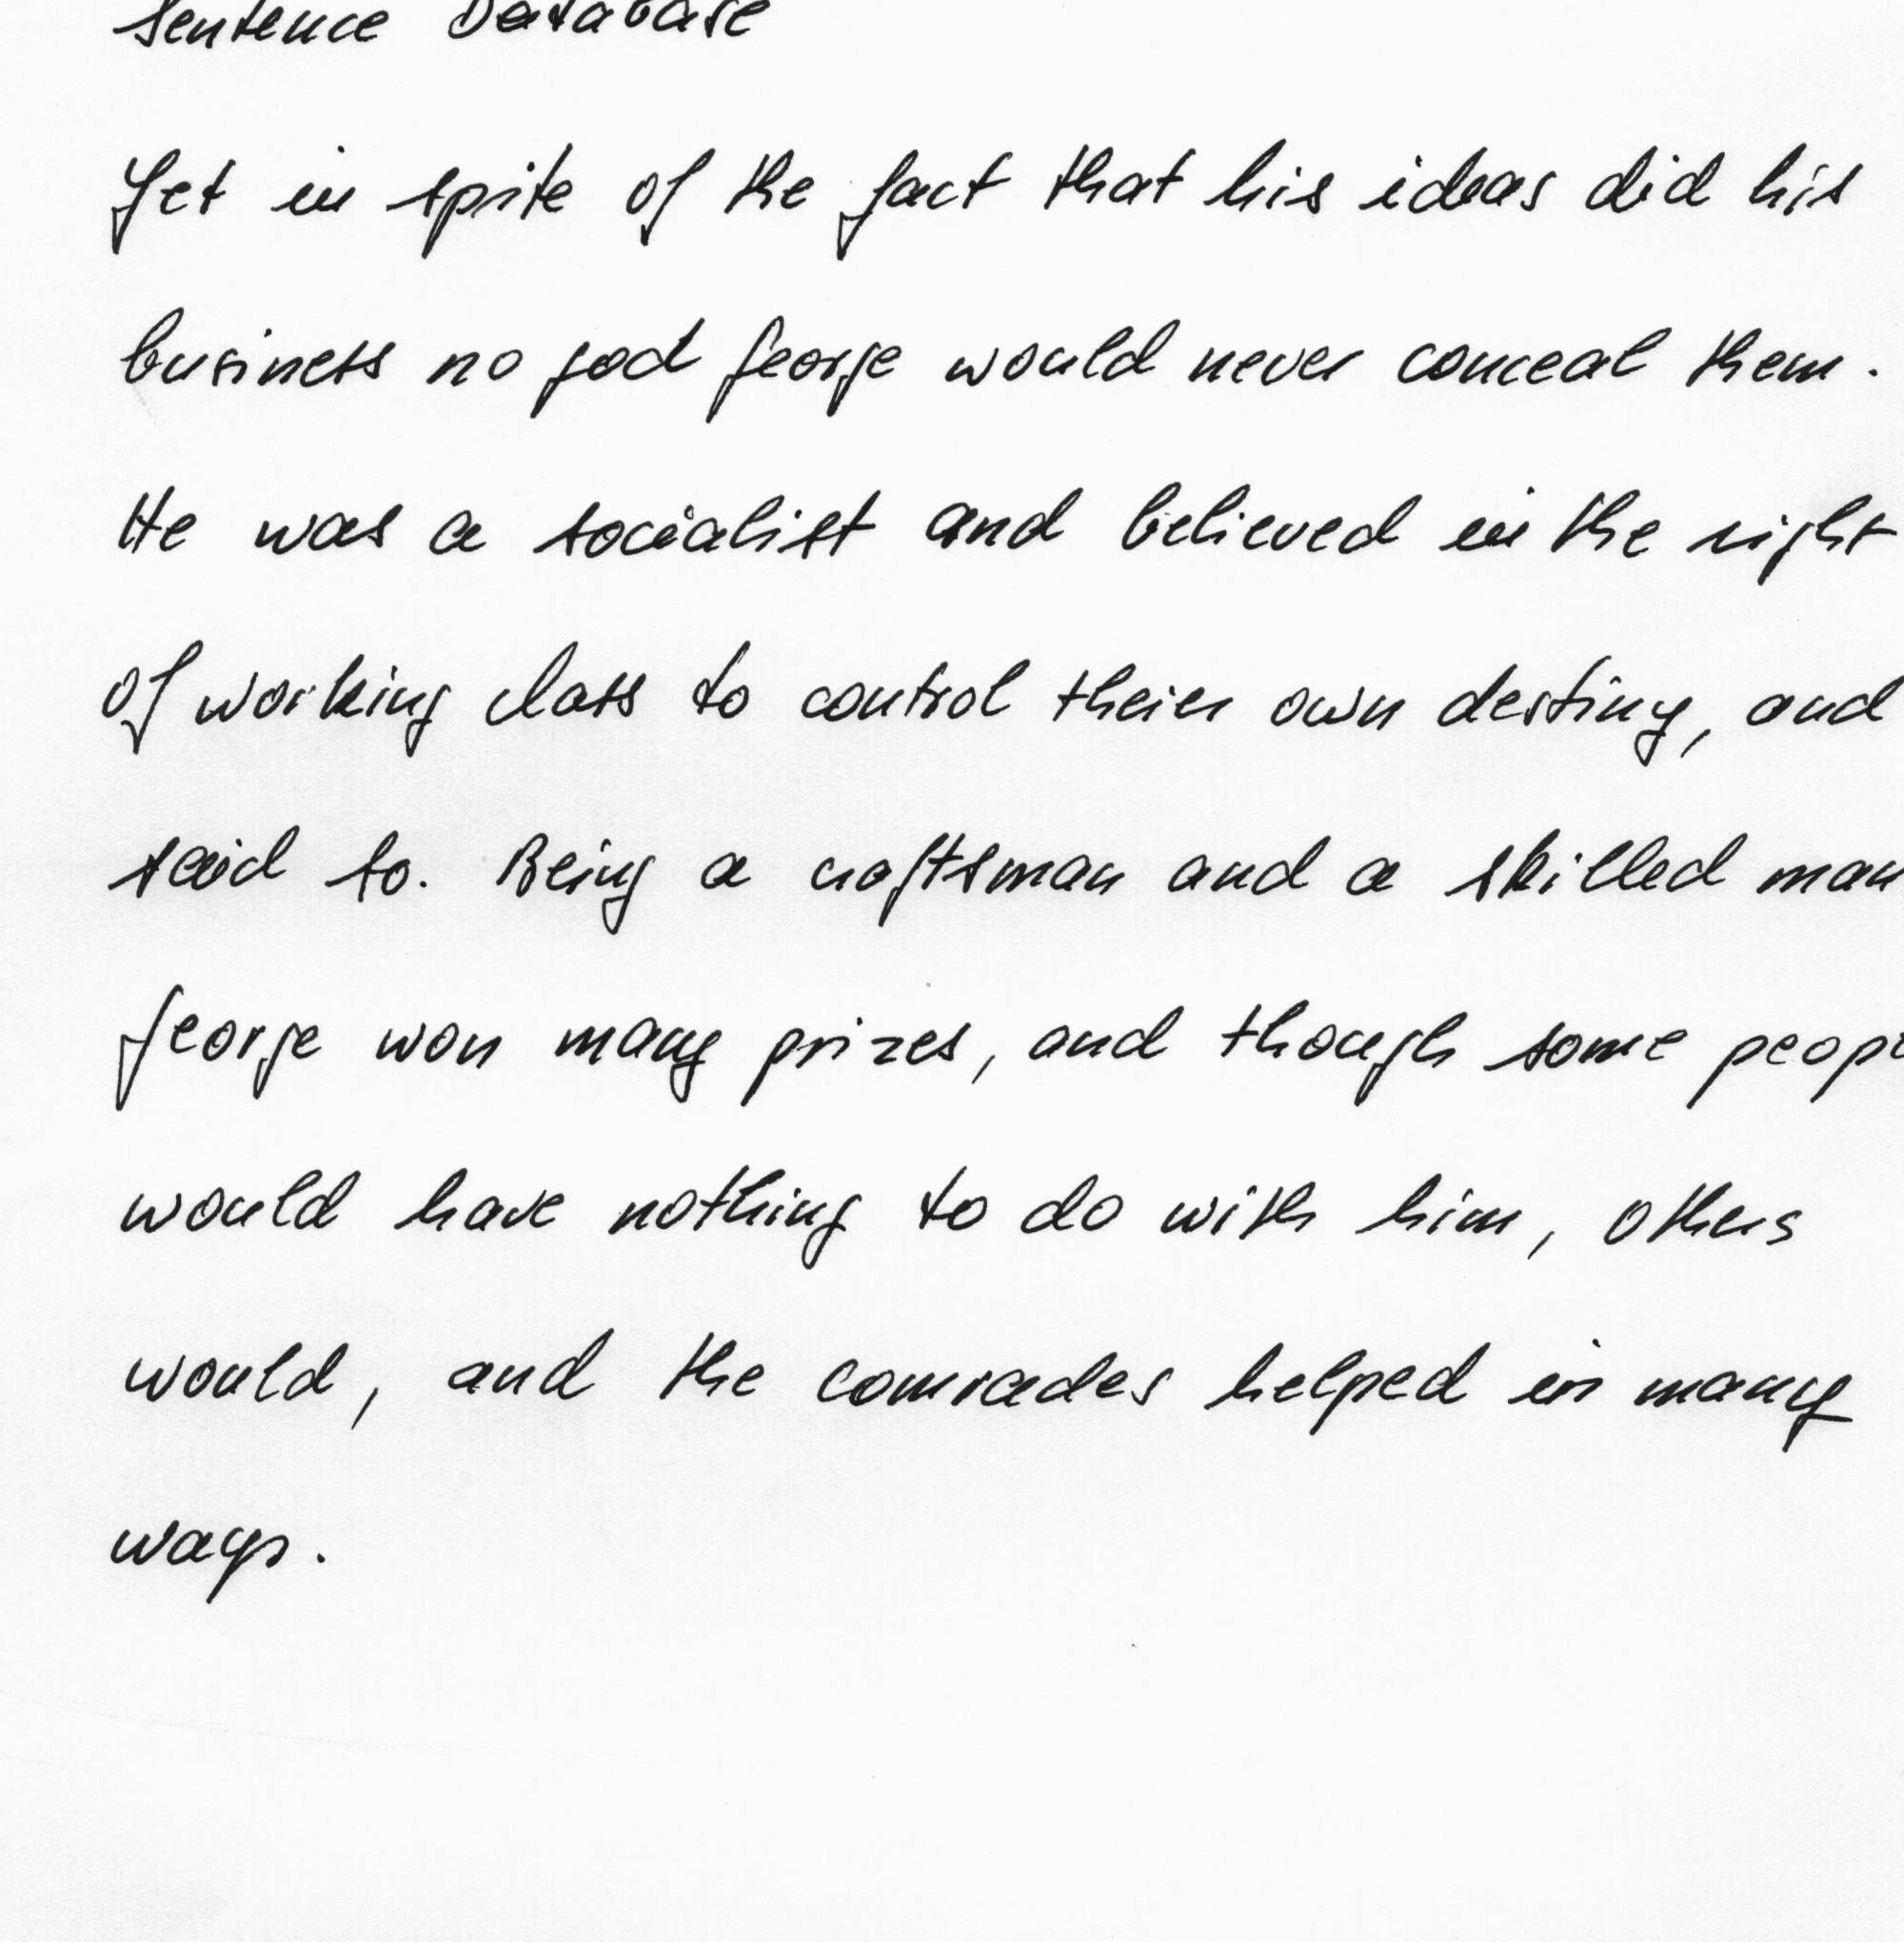 Sentence Database
Yet in spite of the fact that his ideas did his
business no god George would never conceal them.
He was a socialist and believed in the right
of working class to control theier own destiny, and
said so. Being a craftsman and a skilled man
George won many prizes, and though some peopl
would have nothing to do with him, others
would, and the comrades helped in many
ways.